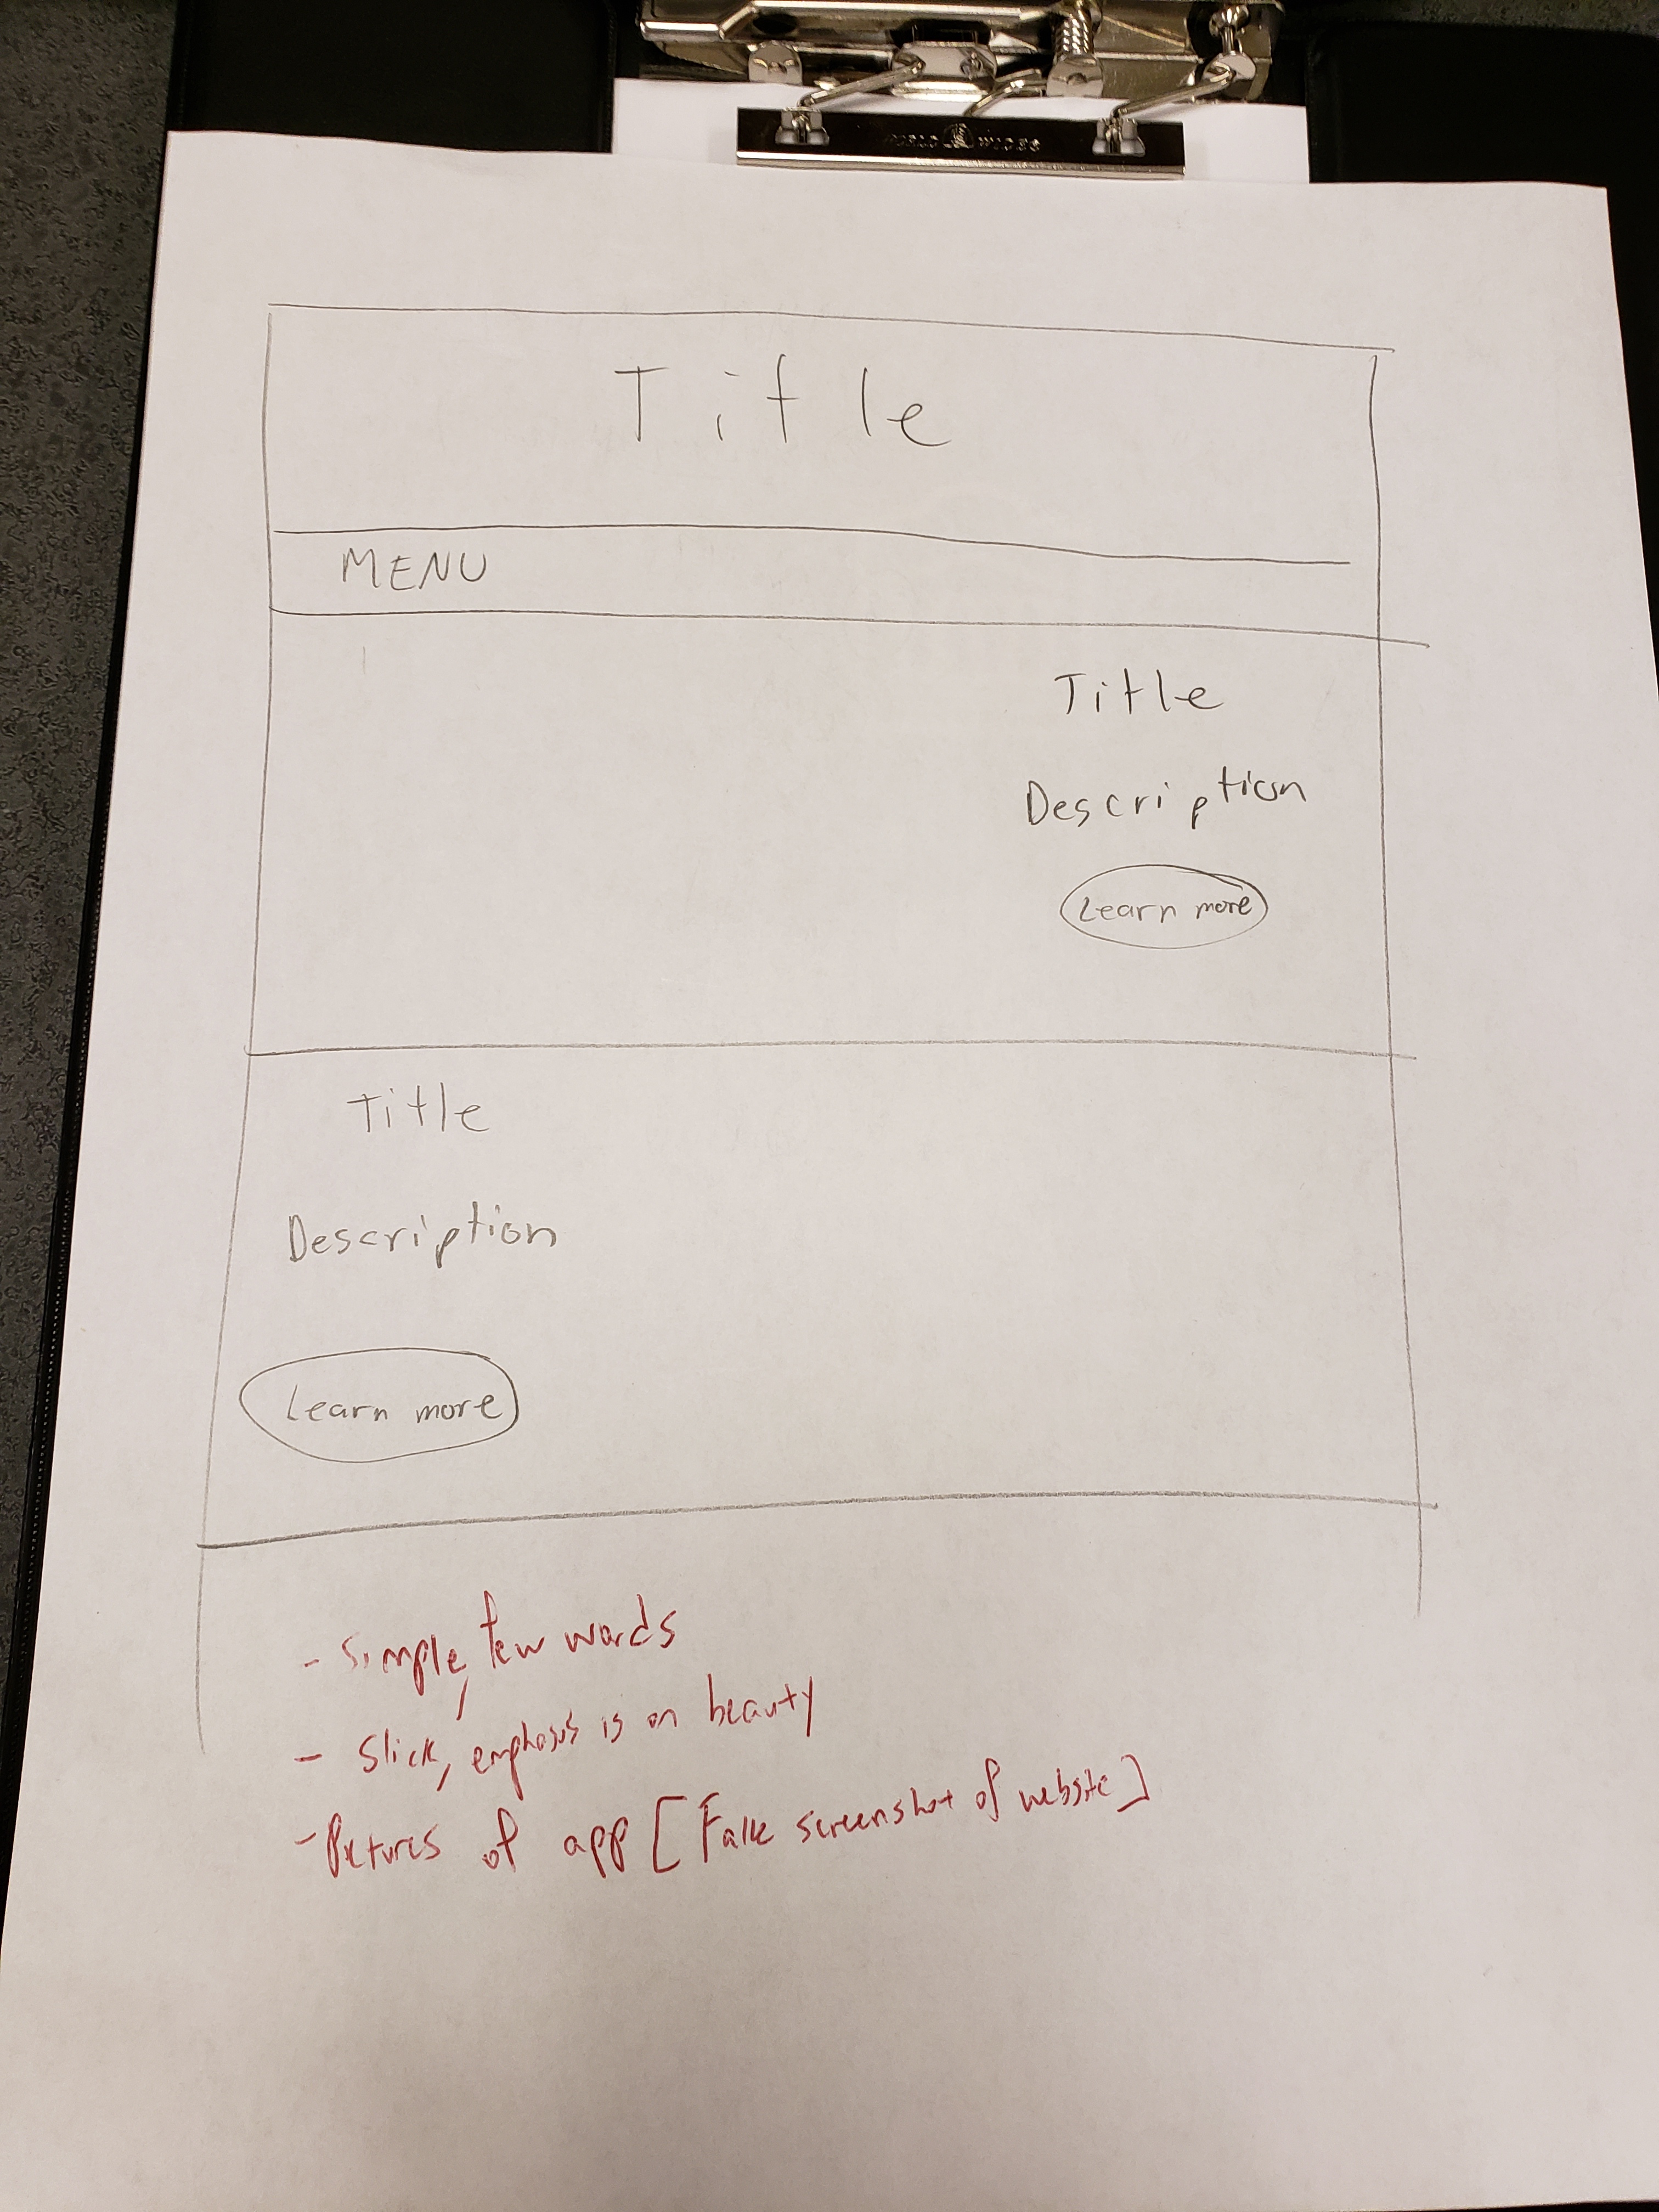 Title
MENU
Title
Description
Learn more
Title
Description
Learn more
- Simple, few words
- Slick, emphasis is on beauty
- Pictures of app [Fake screenshot of website]